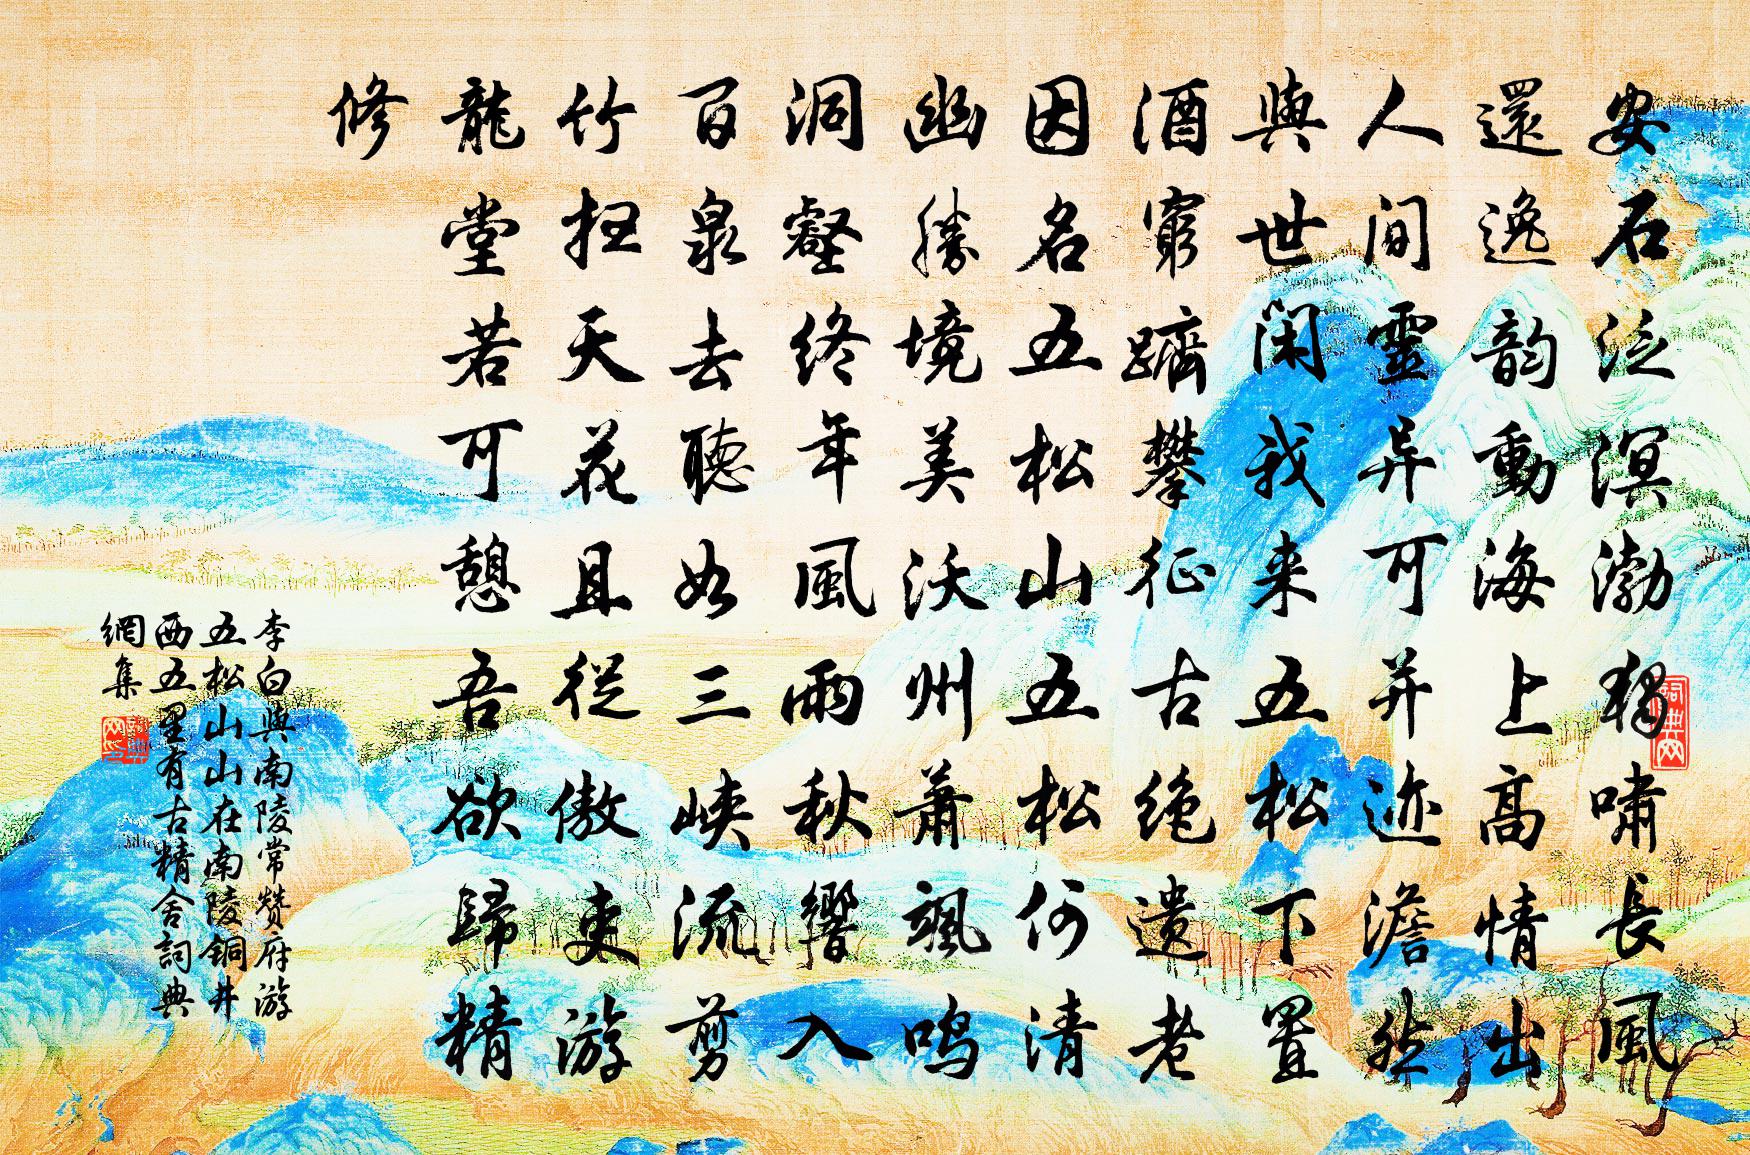 安石泛溟渤獨嘯長風
還逸韵動海上高情出
人间靈异可并迹澹然
與世闲我来五松下置
酒窮躋攀征古绝遗老
因名五松山五松何清
幽勝境美沃州萧飒鸣
洞壑终年風雨秋響入
百泉去聽如三峡流剪
竹扫天花且從傲吏游
龍堂若可憩吾欲歸精
修
李白與南陵常赞府游
五松山山在南陵铜井
西五里有古精舍詞典
網集
詞典网
詞典网